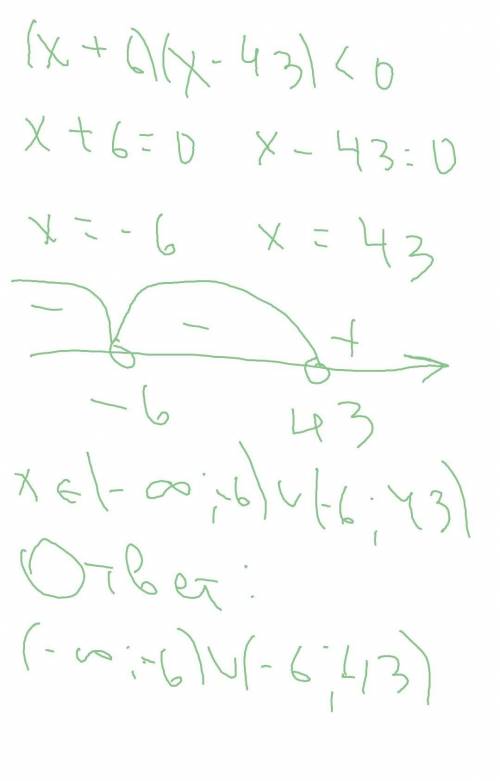 (x + 6)(x - 43) < 0
x + 6 = 0 x - 43 = 0
x = -6 x = 43
- - +
-6 43
x ∈ (-∞; -6) ∪ (-6; 43)
Ответ:
(-∞; -6) ∪ (-6; 43)